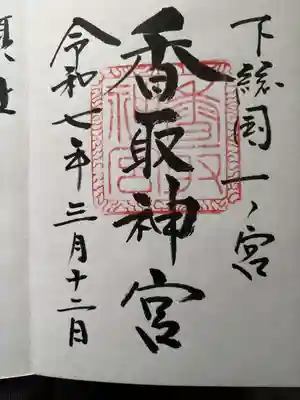 下総国一ノ宮
香取神宮
令和七年三月十二日